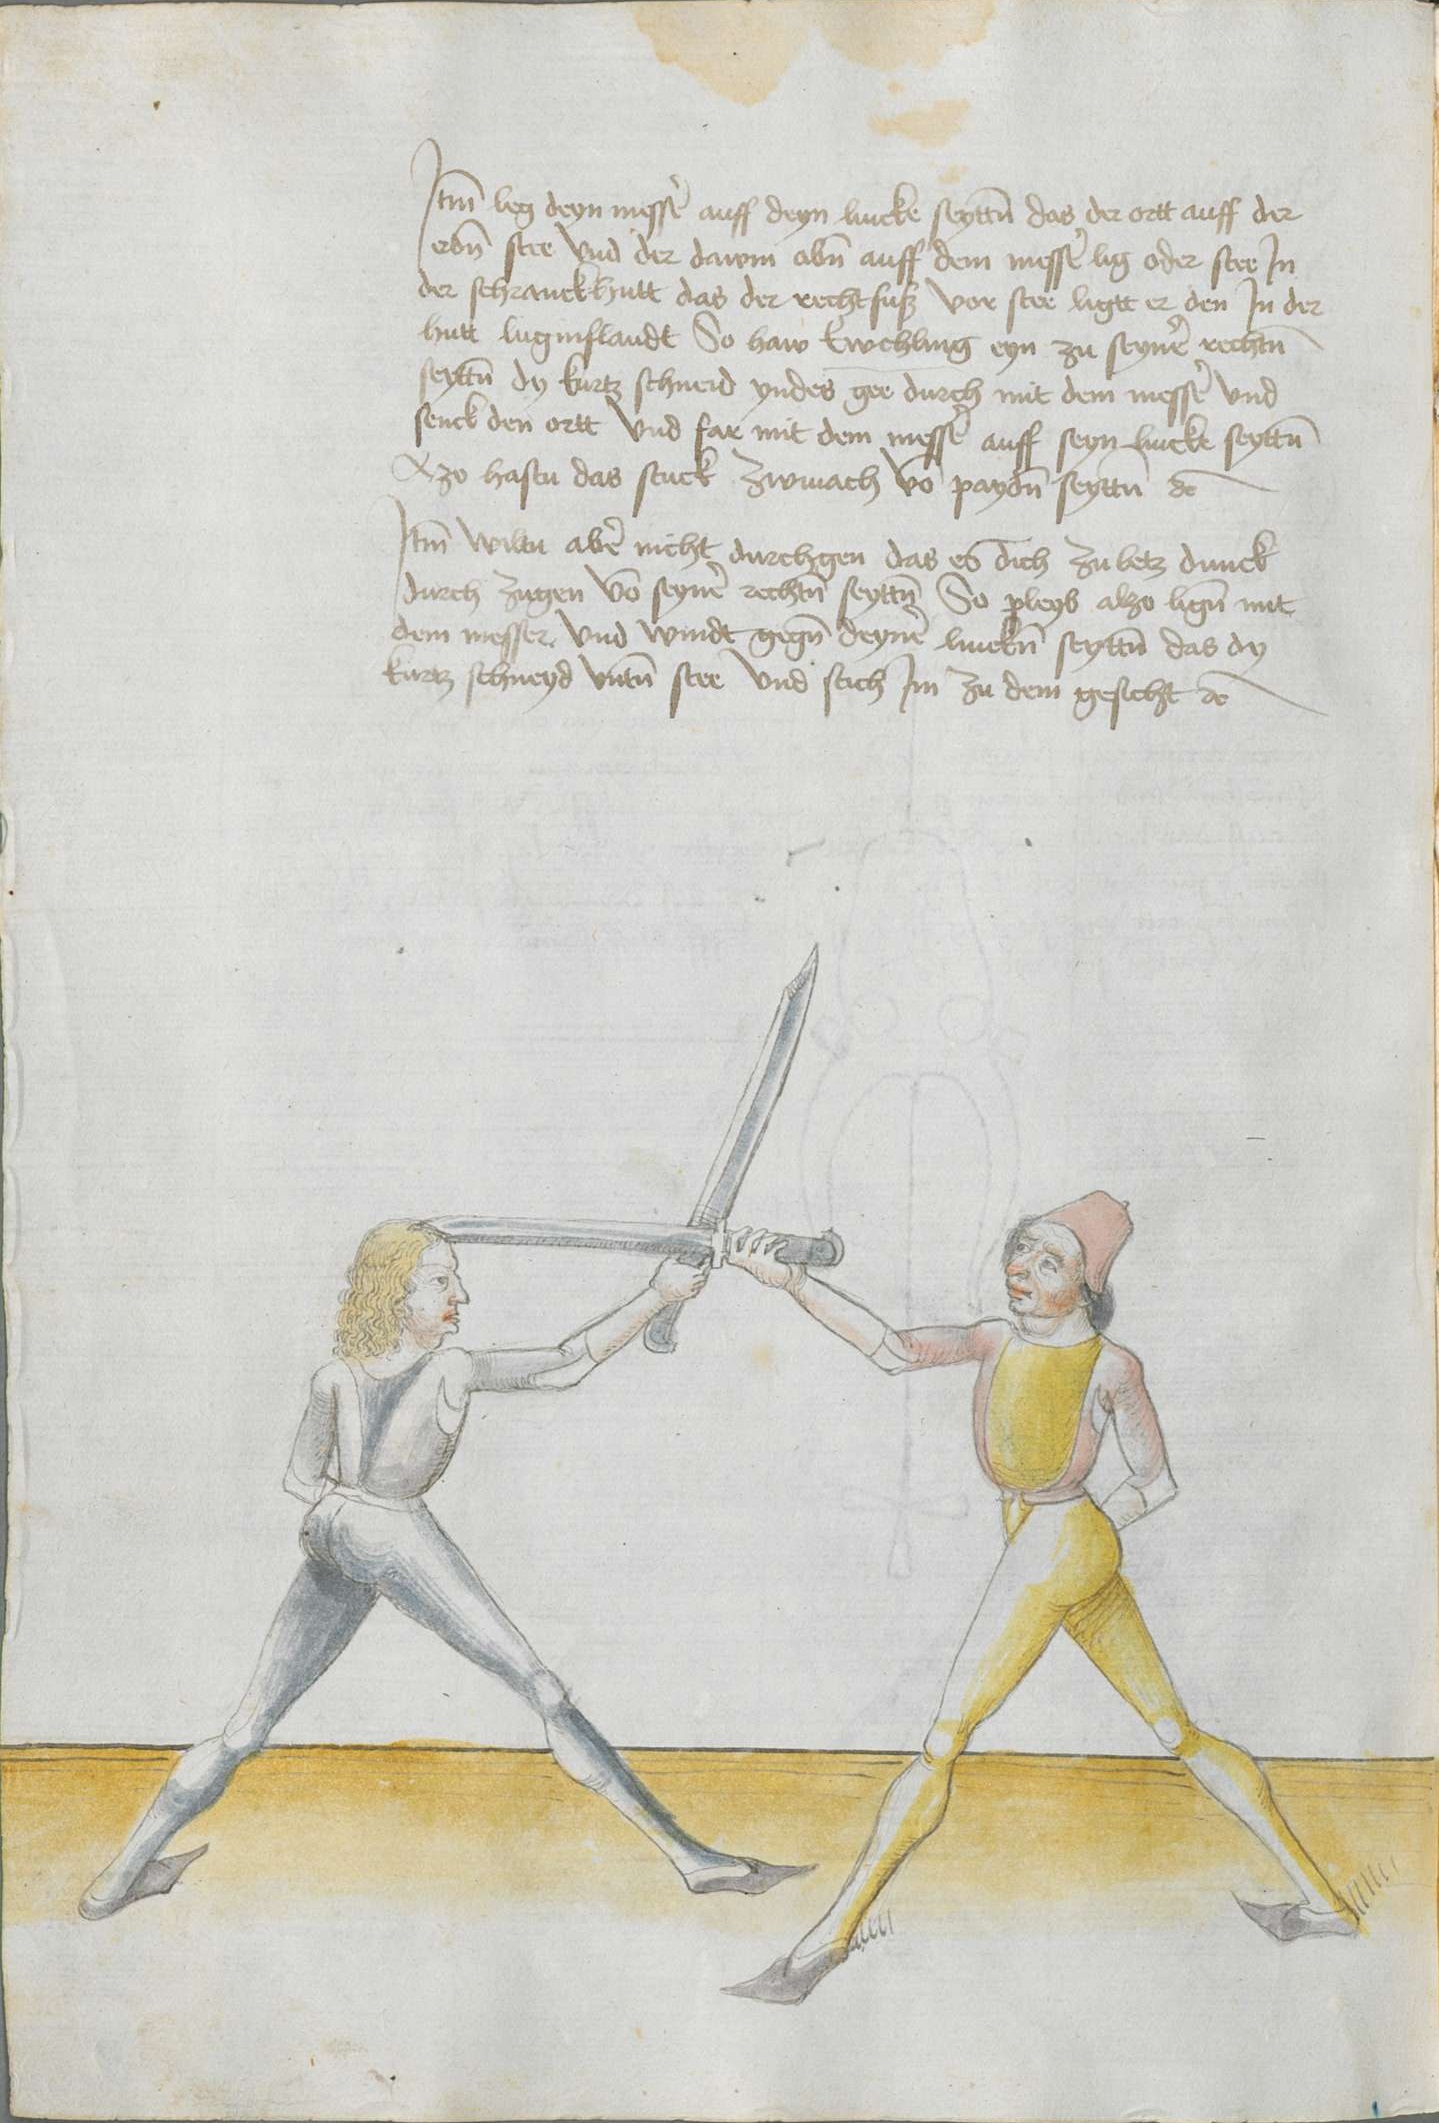 Itm̄ leg deyn messe᷑ auff deyn lincke seyttn̄ das der ortt auff der
erdn̄ stee Vnd der dawm̄ obn̄ auff dem messe᷑ lig oder stee In
der schranckhutt das der recht fuß vor stee ligtt er den In der
hutt luginslandt So haw Ewchling eyn zu seyne᷑ rechtn̄
seyttn̄ dy kurtz schneid yndes gee durch mit dem messe᷑ Vnd
senck den ortt Vnd far mit dem messe᷑ auff seyn lincke seyttn̄
Alzo hastu das stuck zwmach vō paydn̄ seyttn̄ ꝛc̄
Itm̄ wiltu abe᷑ nicht durchgen das es dich zu letz dunck
durch zugen vō seyne᷑ rechtn̄ seyttn̄ So pleyb alzo lign̄ mit
dem messer Vnd windt gegn̄ deyne᷑ linckn̄ seyttn̄ das dy
kurtz schneyd vntn̄ stee Vnd stich Im zu dem gesicht ꝛc̄